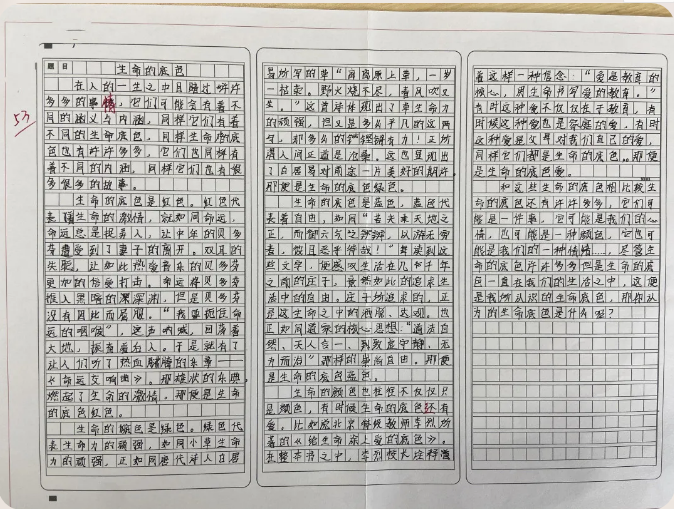 题目
生命的底色
在人的一生之中自踏过许许
多多的事情，它们可能会有着不
同的涵义与内涵，同样它们有着
不同的生命底色，同样生命的底
色也有许许多多，它们也同样有
着不同的内涵。同样它们也有很
多很多的故事。
生命的底色是红色。红色代
表生命的激情，就如同命运，
命运总是捉弄人，让中年的贝多
芬遭受到了妻子的离开。双耳的
失聪，让如此热爱音乐的贝多芬
更加的倍受打击。命运将贝多芬
推入黑暗的深渊，但是贝多芬
没有因此而屈服。“我要扼住命
运的咽喉”，这声呐喊，回荡着
大地，振奋着后人。于是就有了
让人们听了热血腾腾的乐章——
《命运交响曲》。那雄浑的乐章，
燃起了生命的激情，那便是生命
的底色红色。
生命的底色是绿色。绿色代
表生命力的顽强，如同小草生命
力的顽强，正如同唐代诗人白居
易所写的草“离离原上草，一岁
一枯荣。野火烧不尽，春风吹又
生。”这首诗体现出了草生命力
的顽强，但又是多少平凡的这两
句，那多么的铿锵有力！正所
谓人间正道是沧桑。这也显现出
了白居易对前途一片美好的期许，
那便是生命的底色绿色。
生命的底色是蓝色，蓝色代
表着自由，如同“若夫乘天地之
正，而御六气之辩，以游无穷
者，彼且恶乎待哉！”每读到这
些文字，便感叹生活在几千年
之前的庄子，竟然如此的追求生
活中的自由。庄子所追求的，正
是这生命之中的洒脱、达观，也
正如同道家的核心思想“道法自
然、天人合一、到致虚守静、无
为而治”那样的事洒自由。那便
是生命的底色蓝色。
生命的颜色也往往不仅仅只
是颜色，有时候生命的底色还有
爱。比如原北京特级教师李烈所
著的《给生命涂上爱的底色》。
在整本书之中，李烈校长诠释演
着这样一种信念：“爱是教育的
核心，用生命再写爱的教育。”
有时这种爱不仅仅在于教育，有
时候这种爱也是家庭的爱，有时
这种爱是父母对我们自己的爱，
同样它们都是生命的底色。那便
是生命的底色爱。
和这些生命的底色相比较生
命的底色还有许许多多，它们可
能是一件事，它可能是我们的心
情，也可能是一种颜色，它也可
能是我们的一种情绪……，尽管生
命的底色许许多多但是生命的底
色一直在我们的生活之中，这便
是我所认识的生命底色，那你认
为的生命底色是什么呢？